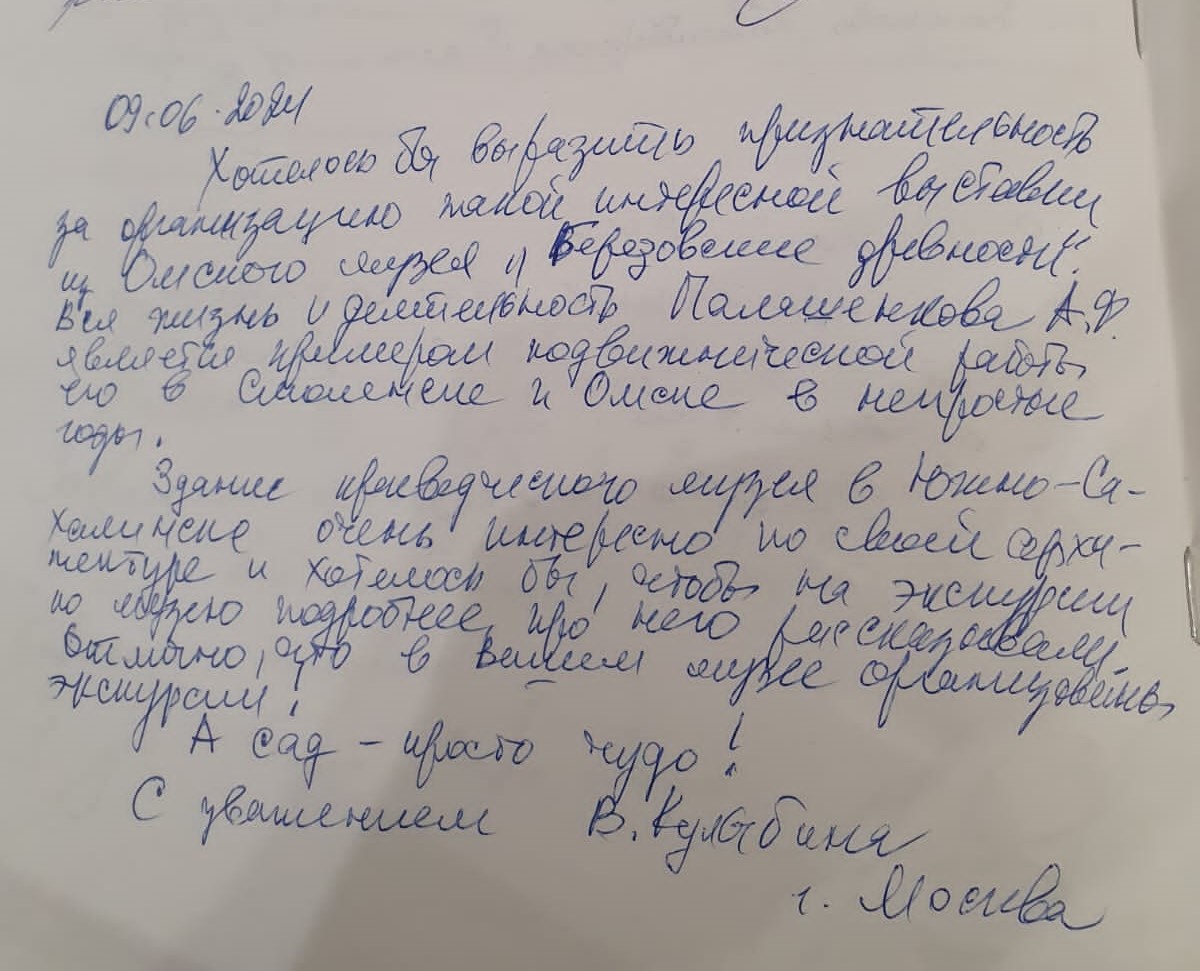 09.06.2024
Хотелось бы выразить признательность
за организацию такой интересной выставки
из Омского музея „Березовские древности".
Вся жизнь и деятельность Палашенкова А.Ф.
является примером подвижнической работы
его в Смоленске и Омске в непростые
годы.
Здание краеведческого музея в Южно-Са-
халинске очень интересно по своей архи-
тектуре и хотелось бы, чтобы на экскурсии
по музею подробнее про него рассказывали.
Отлично, что в Вашем музее организованы
экскурсии!
А сад - просто чудо!
С уважением В. Кулыбина
г. Москва